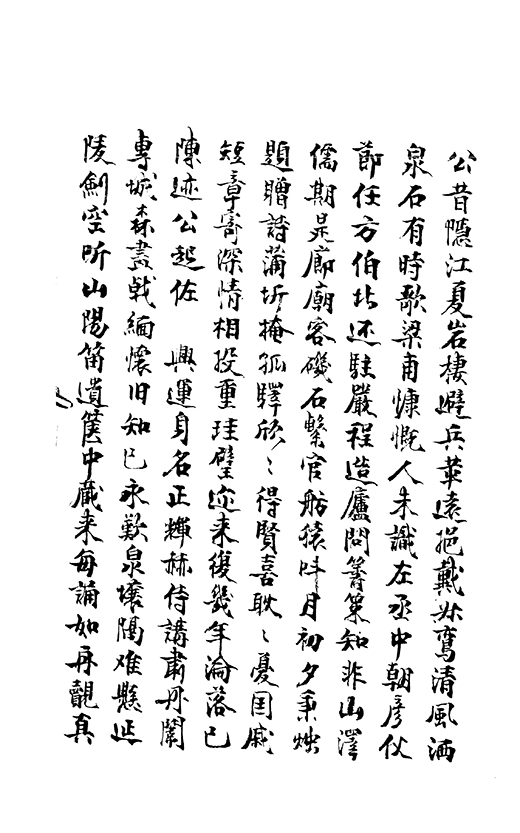 公昔隱江夏岩棲避兵革遠挹戴叔鸞清風洒
泉石有時歌梁甫慷慨人未識左丞中朝彥仗
節任方伯北还駐嚴程造廬問籌策知非山澤
儒期是廊廟客磯石繫官舫猿叫月初夕秉燭
題贈詩蒲圻掩孤驛欣〻得賢喜耿〻憂国戚
短章寄深情相投重珪璧迩来復幾年淪落已
陳迹公起佐　興運身名正輝赫侍講肅丹闈
專城森畫戟緬懷旧知己永歎泉壤隔难懸延
陵劍空听山陽笛遺篋中藏来每誦如再覿真